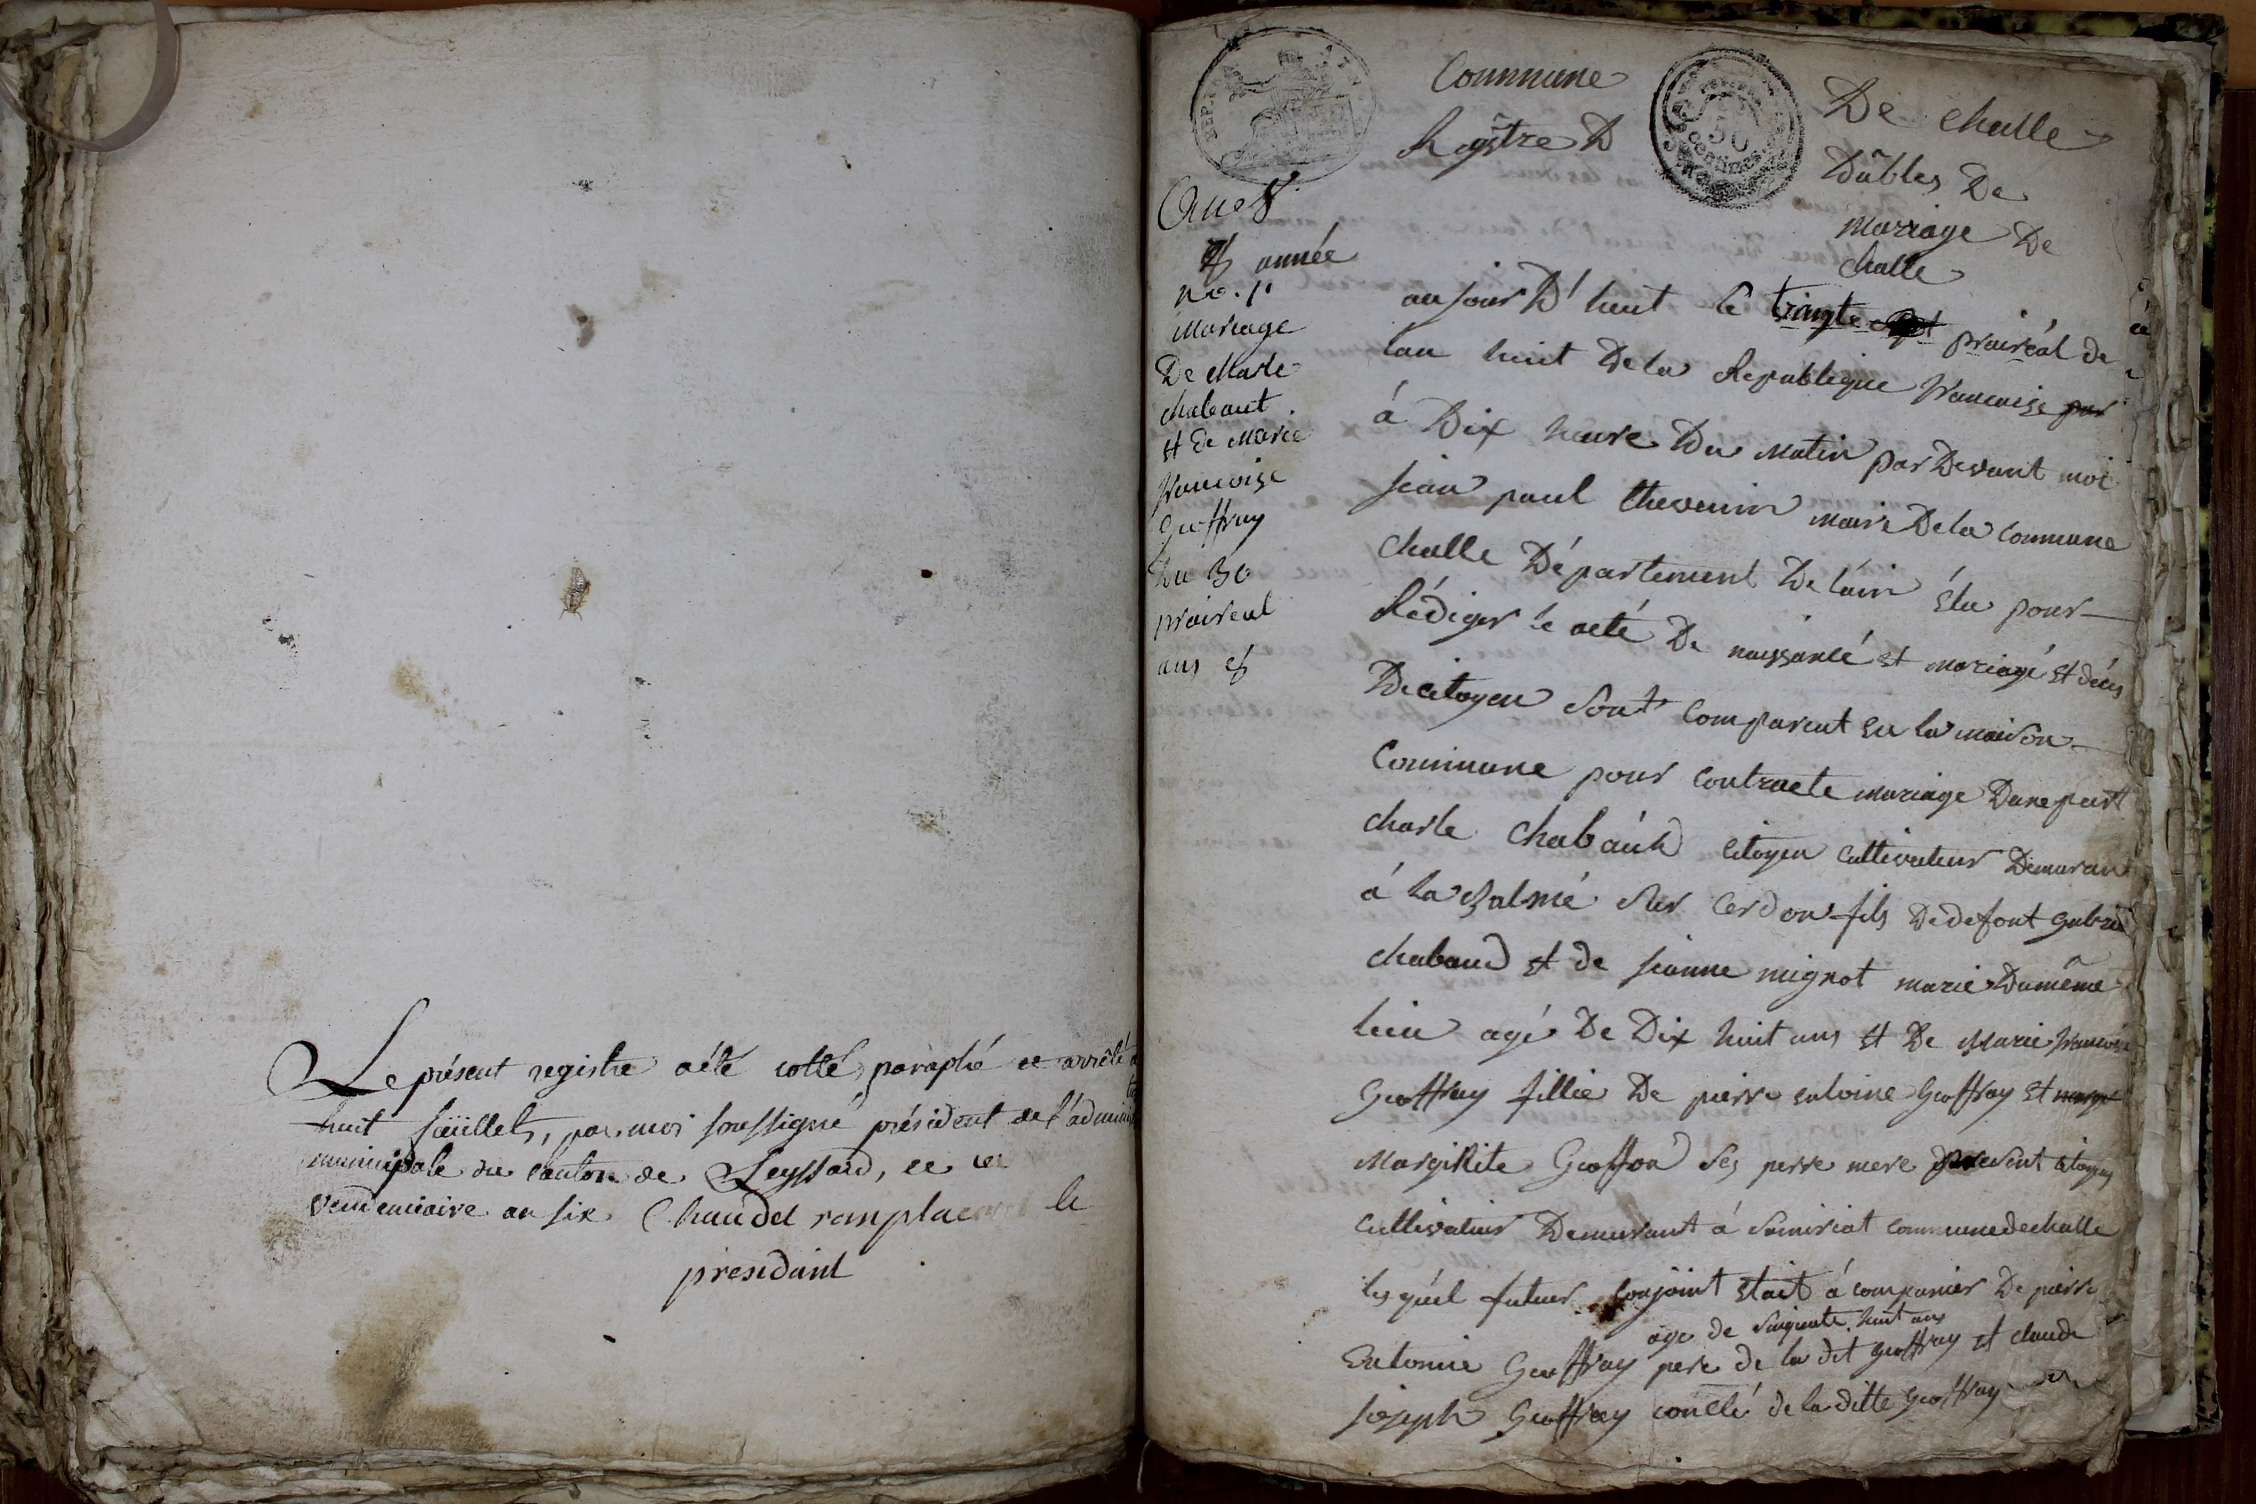 Le présent registre a été cotté, paraphé et arrêté à
huit feüillets, par moi soussigné président de l'admini
municipale du canton de Leyssard, ce 1er
vendemiaire an six Chaudet ramplacent le
president
Commune De Challe
Regîstre D Doûbles De
mariage De
Challe
année
no. 1er
Mariage
De Charle
Chabaut
et de Marie
francoise
Geoffray
Du 30
prairéal
ans 8
aujour D'huit le tringte prairéal de
lan huit De la Republique francoise par
á Dix heure Du Matin par Devant moi
jean paul thevenin maire De la Commune
Challe Département De láin élu pour
Rédiger le acté De naissancé et mariagé et décés
De citoyen Sont comparent en la maison
Commune pour contracte mariage Dune part
charle Chabaud citoyen cultivateur Demuran
á la Balmé Sur Cerdon fils De defont gabriel
chabaud et de jeanne mignot marie Dumême
lieu agé De Dix huit ans et De Marie francoise
Geoffray fillie De pierre entoine Geoffray et
Margirite Geoffon Ses perre mere present citoyen
cultivatiur Demurant á Somiriat commune de challe
les quél futur conjoint etait á companier De pierre
age de Sinquente huit ans
Entonie Geoffray pere de la dit Geoffray et claude
joseph Geoffray conclé de la ditte Geoffray